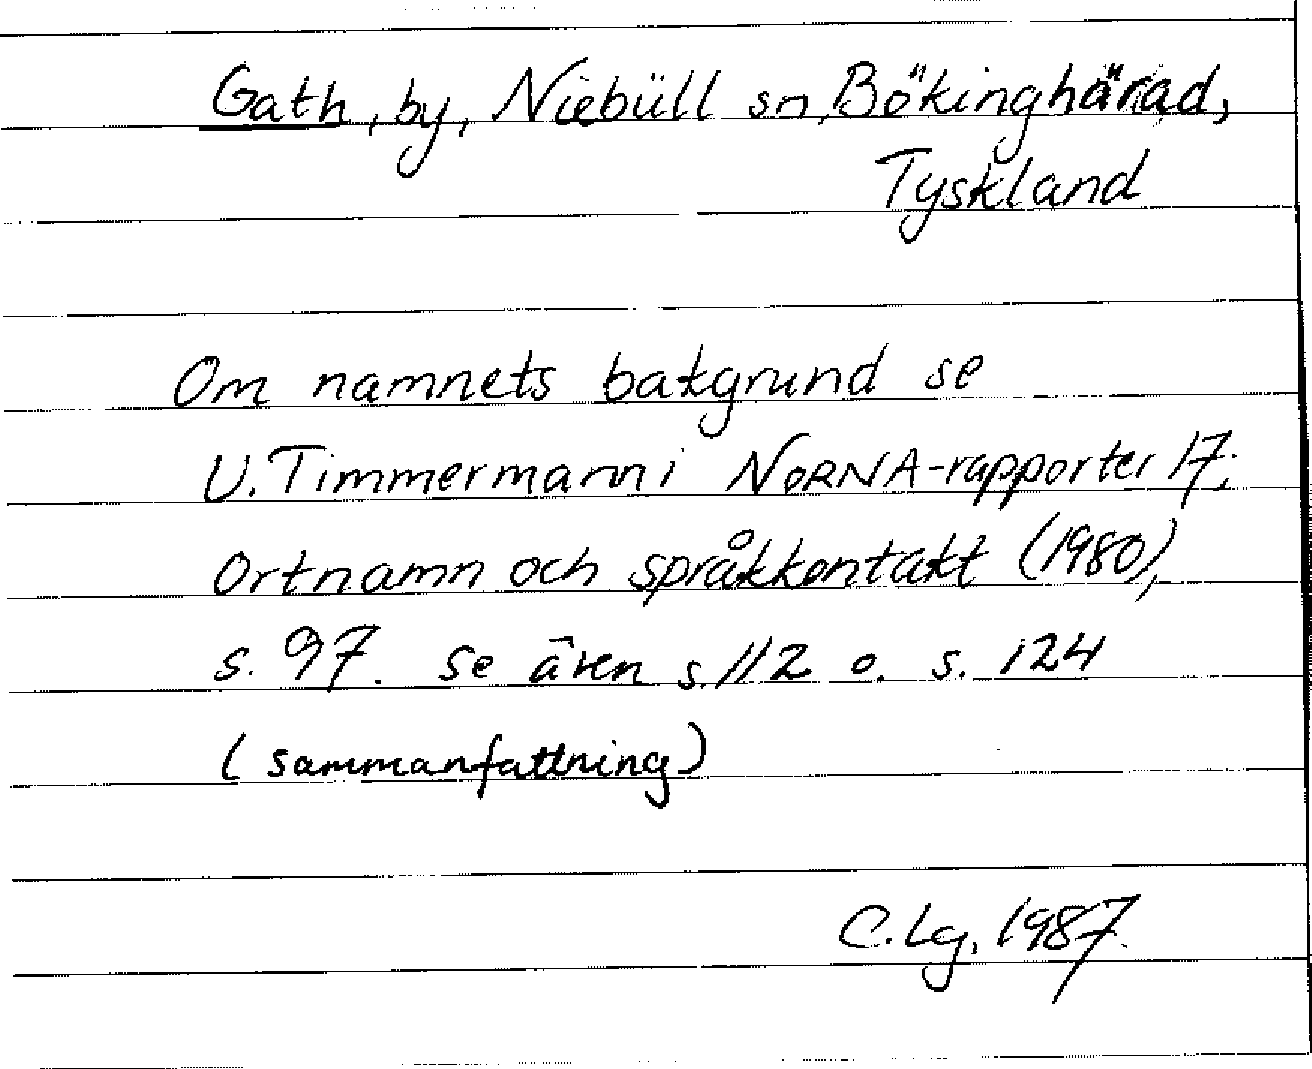 Gath, by, Niebüll sn, Bökinghärad,
Tyskland
Om namnets bakgrund se
U. Timmermann i NORNA-rapporter 17,
Ortnamn och språkkontakt (1980),
s. 97. se även s. 112 o. s. 124
(sammanfattning)
C. Lg. 1987.